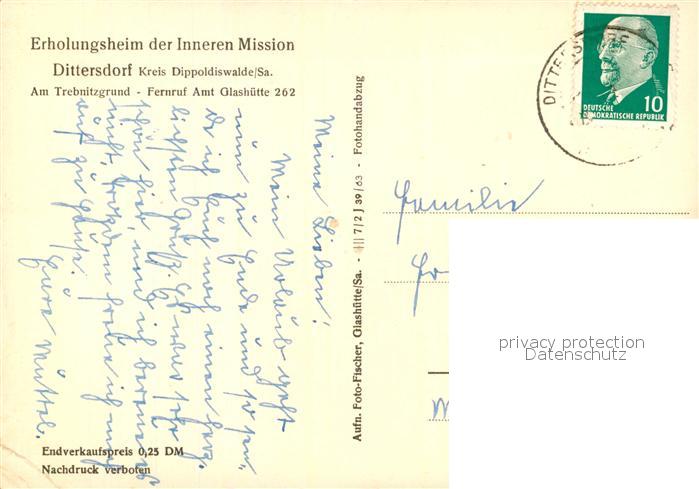 Erholungsheim der Inneren Mission
Dittersdorf Kreis Dippoldiswalde/Sa.
Am Trebnitzgrund - Fernruf Amt Glashütte 262
Meine Lieben!
Mein Urlaub geht
nun zu Ende und so sen-
de ich Euch noch einen herz-
lichsten Gruß. Es war sehr
schön hier, und ich bereue es
nicht, trotzdem freue ich mich
auf zu Hause.
Eure Muttel.
Endverkaufspreis 0,25 DM
Nachdruck verboten
Aufn. Foto-Fischer, Glashütte/Sa. - III 7/2 J 39/63 - Fotohandabzug
DITTERSDORF
DEUTSCHE
DEMOKRATISCHE REPUBLIK
10
Familie
privacy protection
Datenschutz